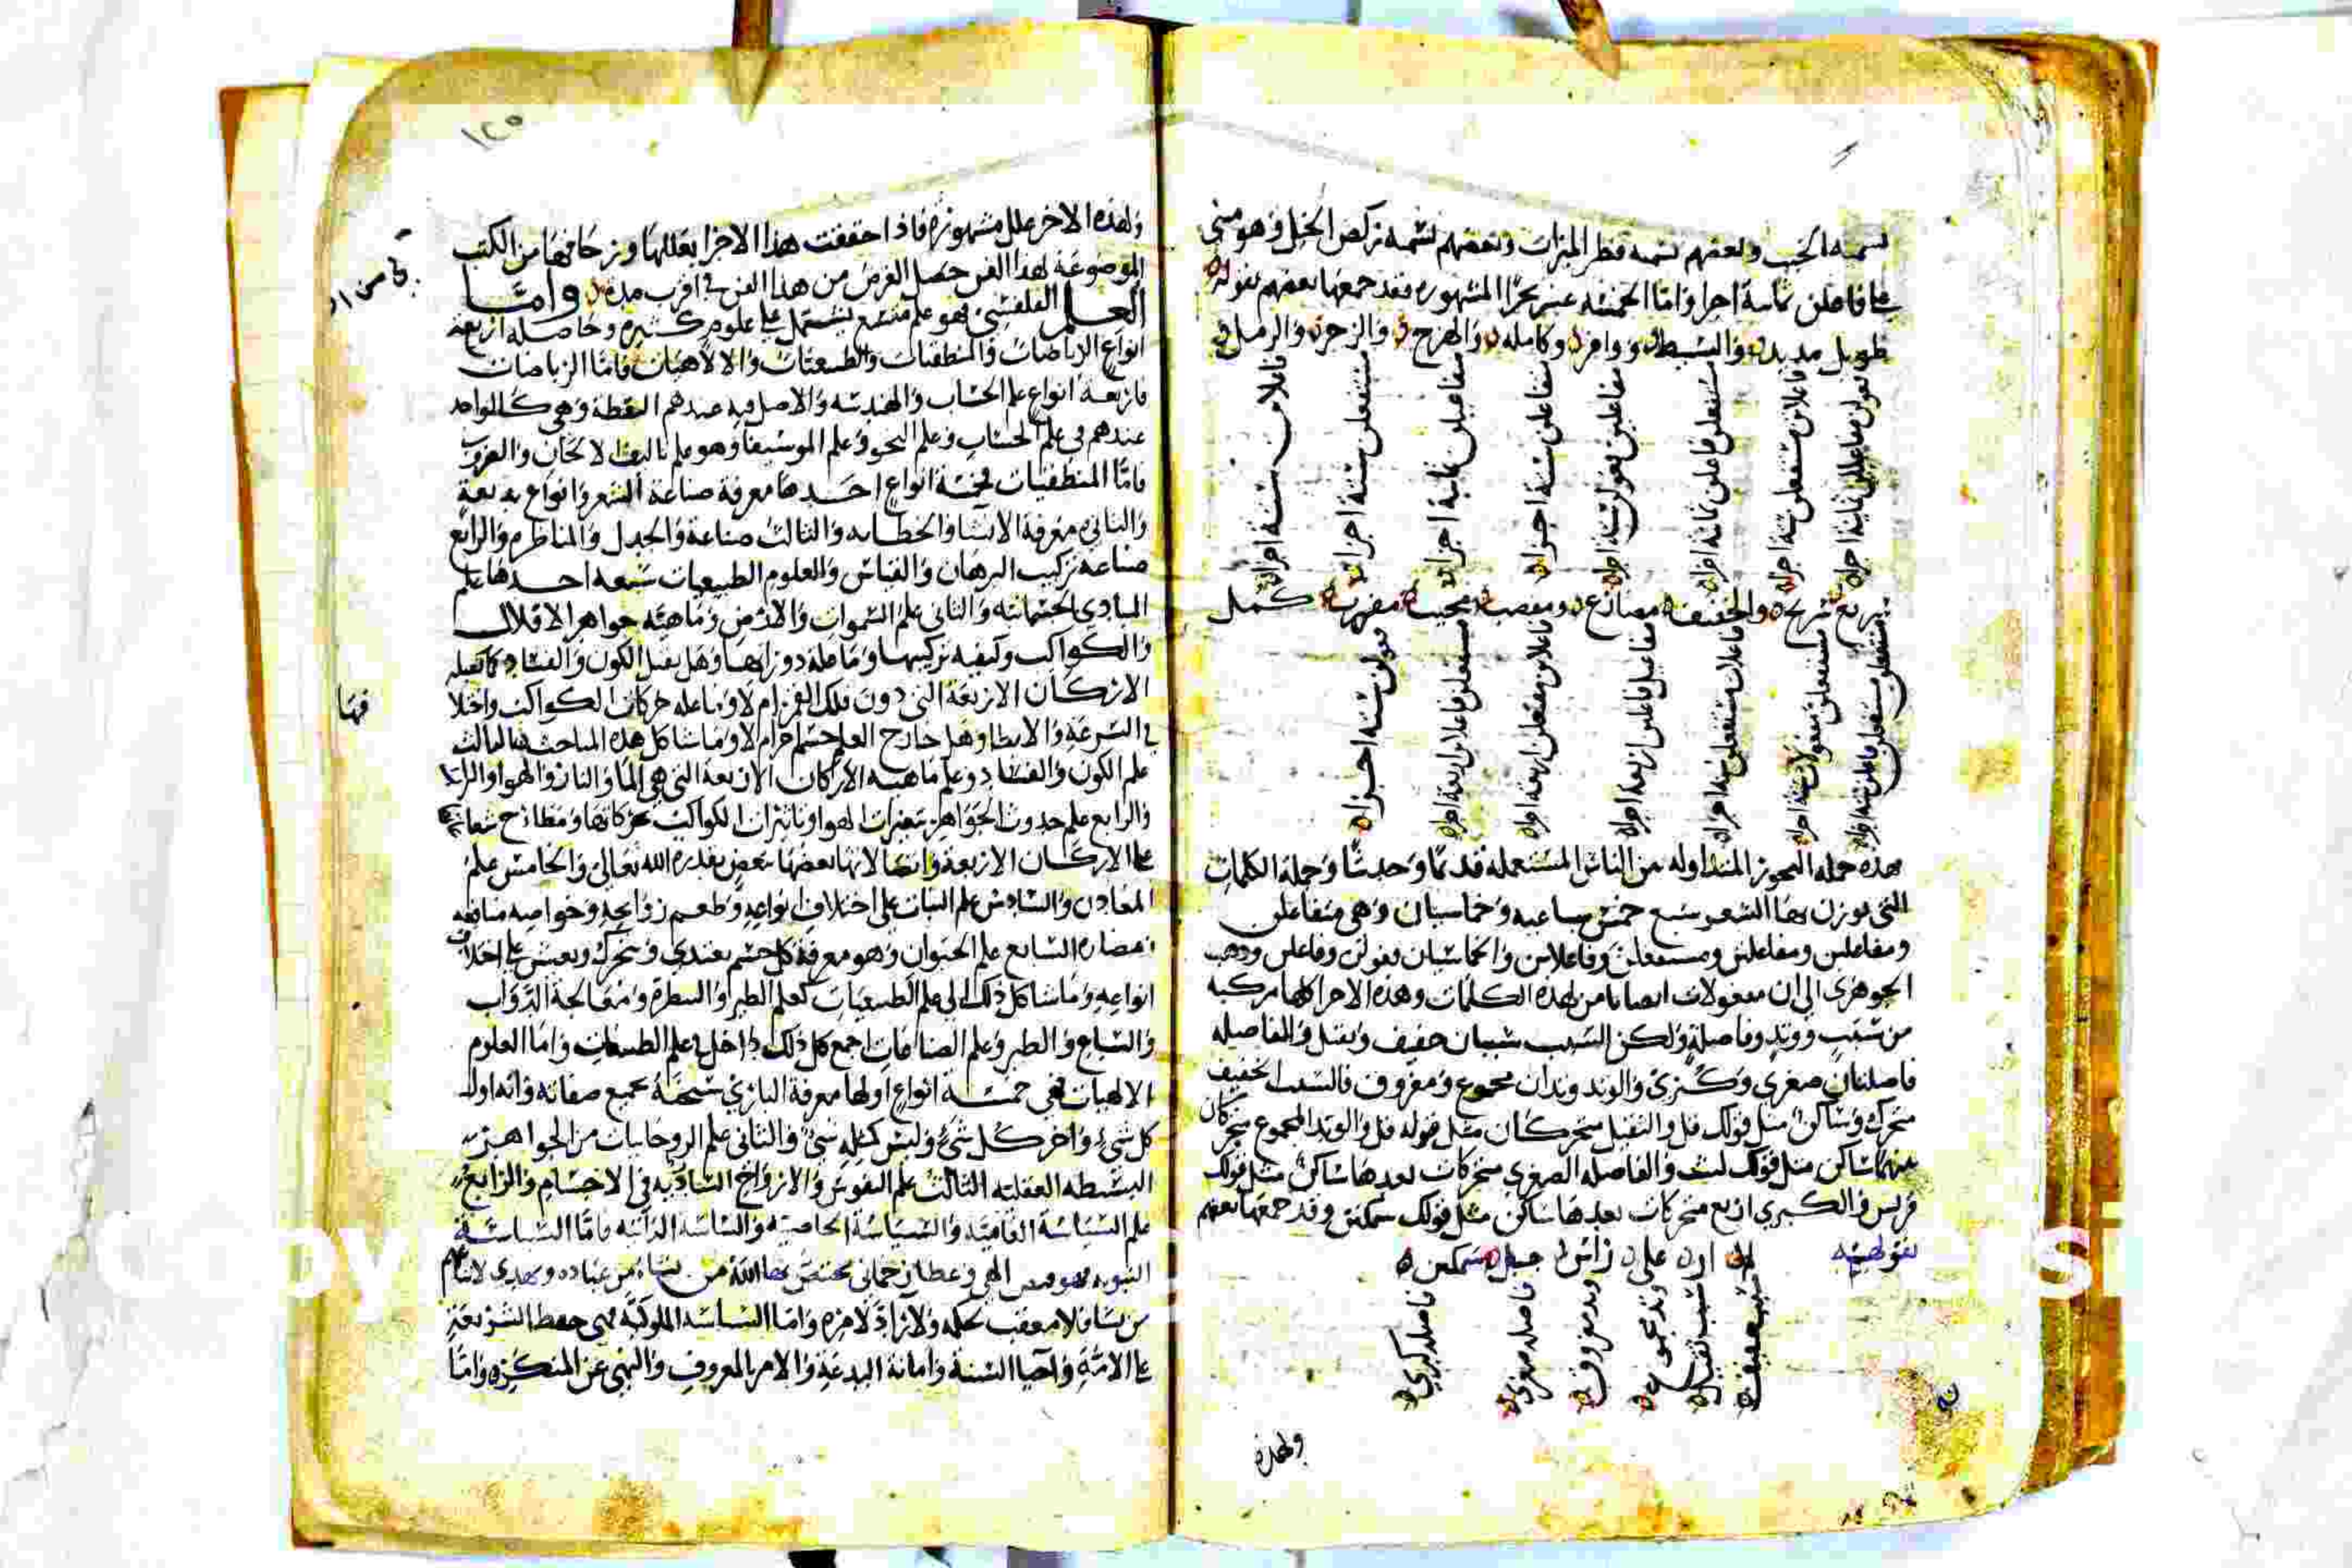 يسميه الخبب وبعضهم يسميه قطر الميزاب وبعضهم يسميه ركض الخيل وهو مبني
على فاعلن ثمانية اجزا واما الخمسة عشر بحرا المشهوره فقد جمعها بعضهم بقوله
طويل مديد والبسيط ووافر وكامله والهزج والرجز والرمل
فعولن مفاعيلن ثمانية اجزا
فاعلاتن مستفعلن ستة اجزا
مستفعلن فاعلن ثمانية اجزا
مفاعلتن فعولن ستة اجزا
متفاعلن ستة اجزا
مفاعيلن ثمانية اجزا
مستفعلن ستة اجزا
فاعلاتن ستة اجزا
سريع سريح والخفيف مضارع ومقضب مجيب مقرب كمل
مستفعلن مستفعلن فاعلن ستة اجزا
مستفعلن مفعولات ستة اجزا
فاعلاتن مستفعلن ستة اجزا
مفاعيل فاعلن اربعة اجزا
فاعلات مفتعلن اربعة اجزا
مستفعلن فاعلاتن اربعة اجزا
فعولن ستة اجزا
هذه جمله البحور المتداوله بين الناس المستعمله قديما وحديثا وجملة الكلمات
التي يوزن بها الشعر سبع خمس سباعيه وخماسيان وهي متفاعلن
ومفاعلين ومفاعلتن ومستفعلن وفاعلاتن والخماسيان فعولن وفاعلن وذهب
الجوهري الى ان مفعولات ايضا من هذه الكلمات وهذه الاجزا كلها مركبه
من سبب ووتد وفاصلة ولكن السبب سببان خفيف وثقيل والفاصله
فاصلتان صغرى وكبرى والوتد وتدان مجموع ومفروق فالسبب الخفيف
متحرك وساكن مثل قولك قل والثقيل متحركان مثل قوله فل والوتد المجموع متحركان
بعدهما ساكن مثل قولك لنت والفاصله الصغرى متحركات بعدها ساكن مثل قولك
فرس والكبرى اربع متحركات بعدها ساكن مثل قولك سمكتن وقد جمعها بعضهم
بقوله
لم ار على راس جبل سمكتن
سبب خفيف
سبب ثقيل
وتد مجموع
وتد مفروق
فاصله صغرى
فاصله كبرى
ولهذه
١٢٥
ولهذه الاخر علل مشهوره فاذا حققت هذا الاجزا بعللها وزحافها من الكتب
الموضوعة لهذا الفن حصل الغرض من هذا الفن في اقرب مده واما
العلم الفلفسي فهو علم متسع يشتمل على علوم كثيره وحاصله اربعة
انواع الرياضات والمنطقيات والطبيعيات والالاهيات فاما الرياضات
فاربعة انواع علم الحساب والهندسه والاصل فيه عندهم النقطة وهي كالواحد
عندهم في علم الحساب وعلم النجوم وعلم الموسيقا وهو علم تاليف الالحان والعروض
فاما المنطقيات فخمسة انواع احدها معرفة صناعة الشعر وانواع بديعة
والثاني معرفة الانشا والخطابه والثالث صناعة والجدل والمناظره والرابع
صناعة تركيب البرهان والقياس والعلوم الطبيعيات سبعه احدها علم
المبادي الجسمانيه والثاني علم السموات والارض وماهيته جواهر الافلاك
والكواكب وكيفيه تركيبها وما علة دورانها وهل يقبل الكون والفساد كما يقبله
الاركان الاربعة التي دون فلك القمر ام لا وما علة حركات الكواكب واختلا
فها
في السرعة والابطا وهل خارج العلم جسم اخر ام لا وما شاكل هذه المباحث الثالث
علم الكون والفساد وعلم ماهيه الاركان الاربعة التي هي الما والنار والهوا والتراب
والرابع علم حدوث الجواهر بتغيرات الهوا وتاثيرات الكواكب بحركاتها ومطارح شعاعها
على الاركان الاربعة وانفعالاتها بعضها ببعض بقدرة الله تعالى والخامس علم
المعادن والسادس علم النبات على اختلاف انواعه وطعم روايحه وخواصه منافعه
ومضاره السابع علم الحيوان وهو معرفة كل جسم يغتدي ويتحرك ويعيش على اختلاف
انواعه وما شاكل ذلك الى علم الطبيعيات كعلم الطب والبيطرة ومعالجة الدواب
والسباع والطير وعلم الصناعات اجمع كل ذلك داخل في علم الطبيعيات واما العلوم
الالهيات فهي خمسة انواع اولها معرفة الباري سبحنه بجميع صفاته وانه اول
كل شيء واخر كل شيء وليس كمثله شيء والثاني علم الروحانيات من الجواهر
البسيطه العقليه الثالث علم النفوس والارواح الساريه في الاجسام والرابع
علم السياسة العامية والسياسة الخاصيه والسياسه الذاتيه فاما السياسة
النبويه فهو فيض الهي وعطا رحماني يختص بها الله من يشاء من عباده ويهدي لاتباعهم
من يشا لا معقب لحكمه ولا راد لامره واما السياسه الملوكيه فهي حفظ الشريعة
على الامة واحيا السنة واماتة البدعة والامر بالمعروف والنهي عن المنكر واما